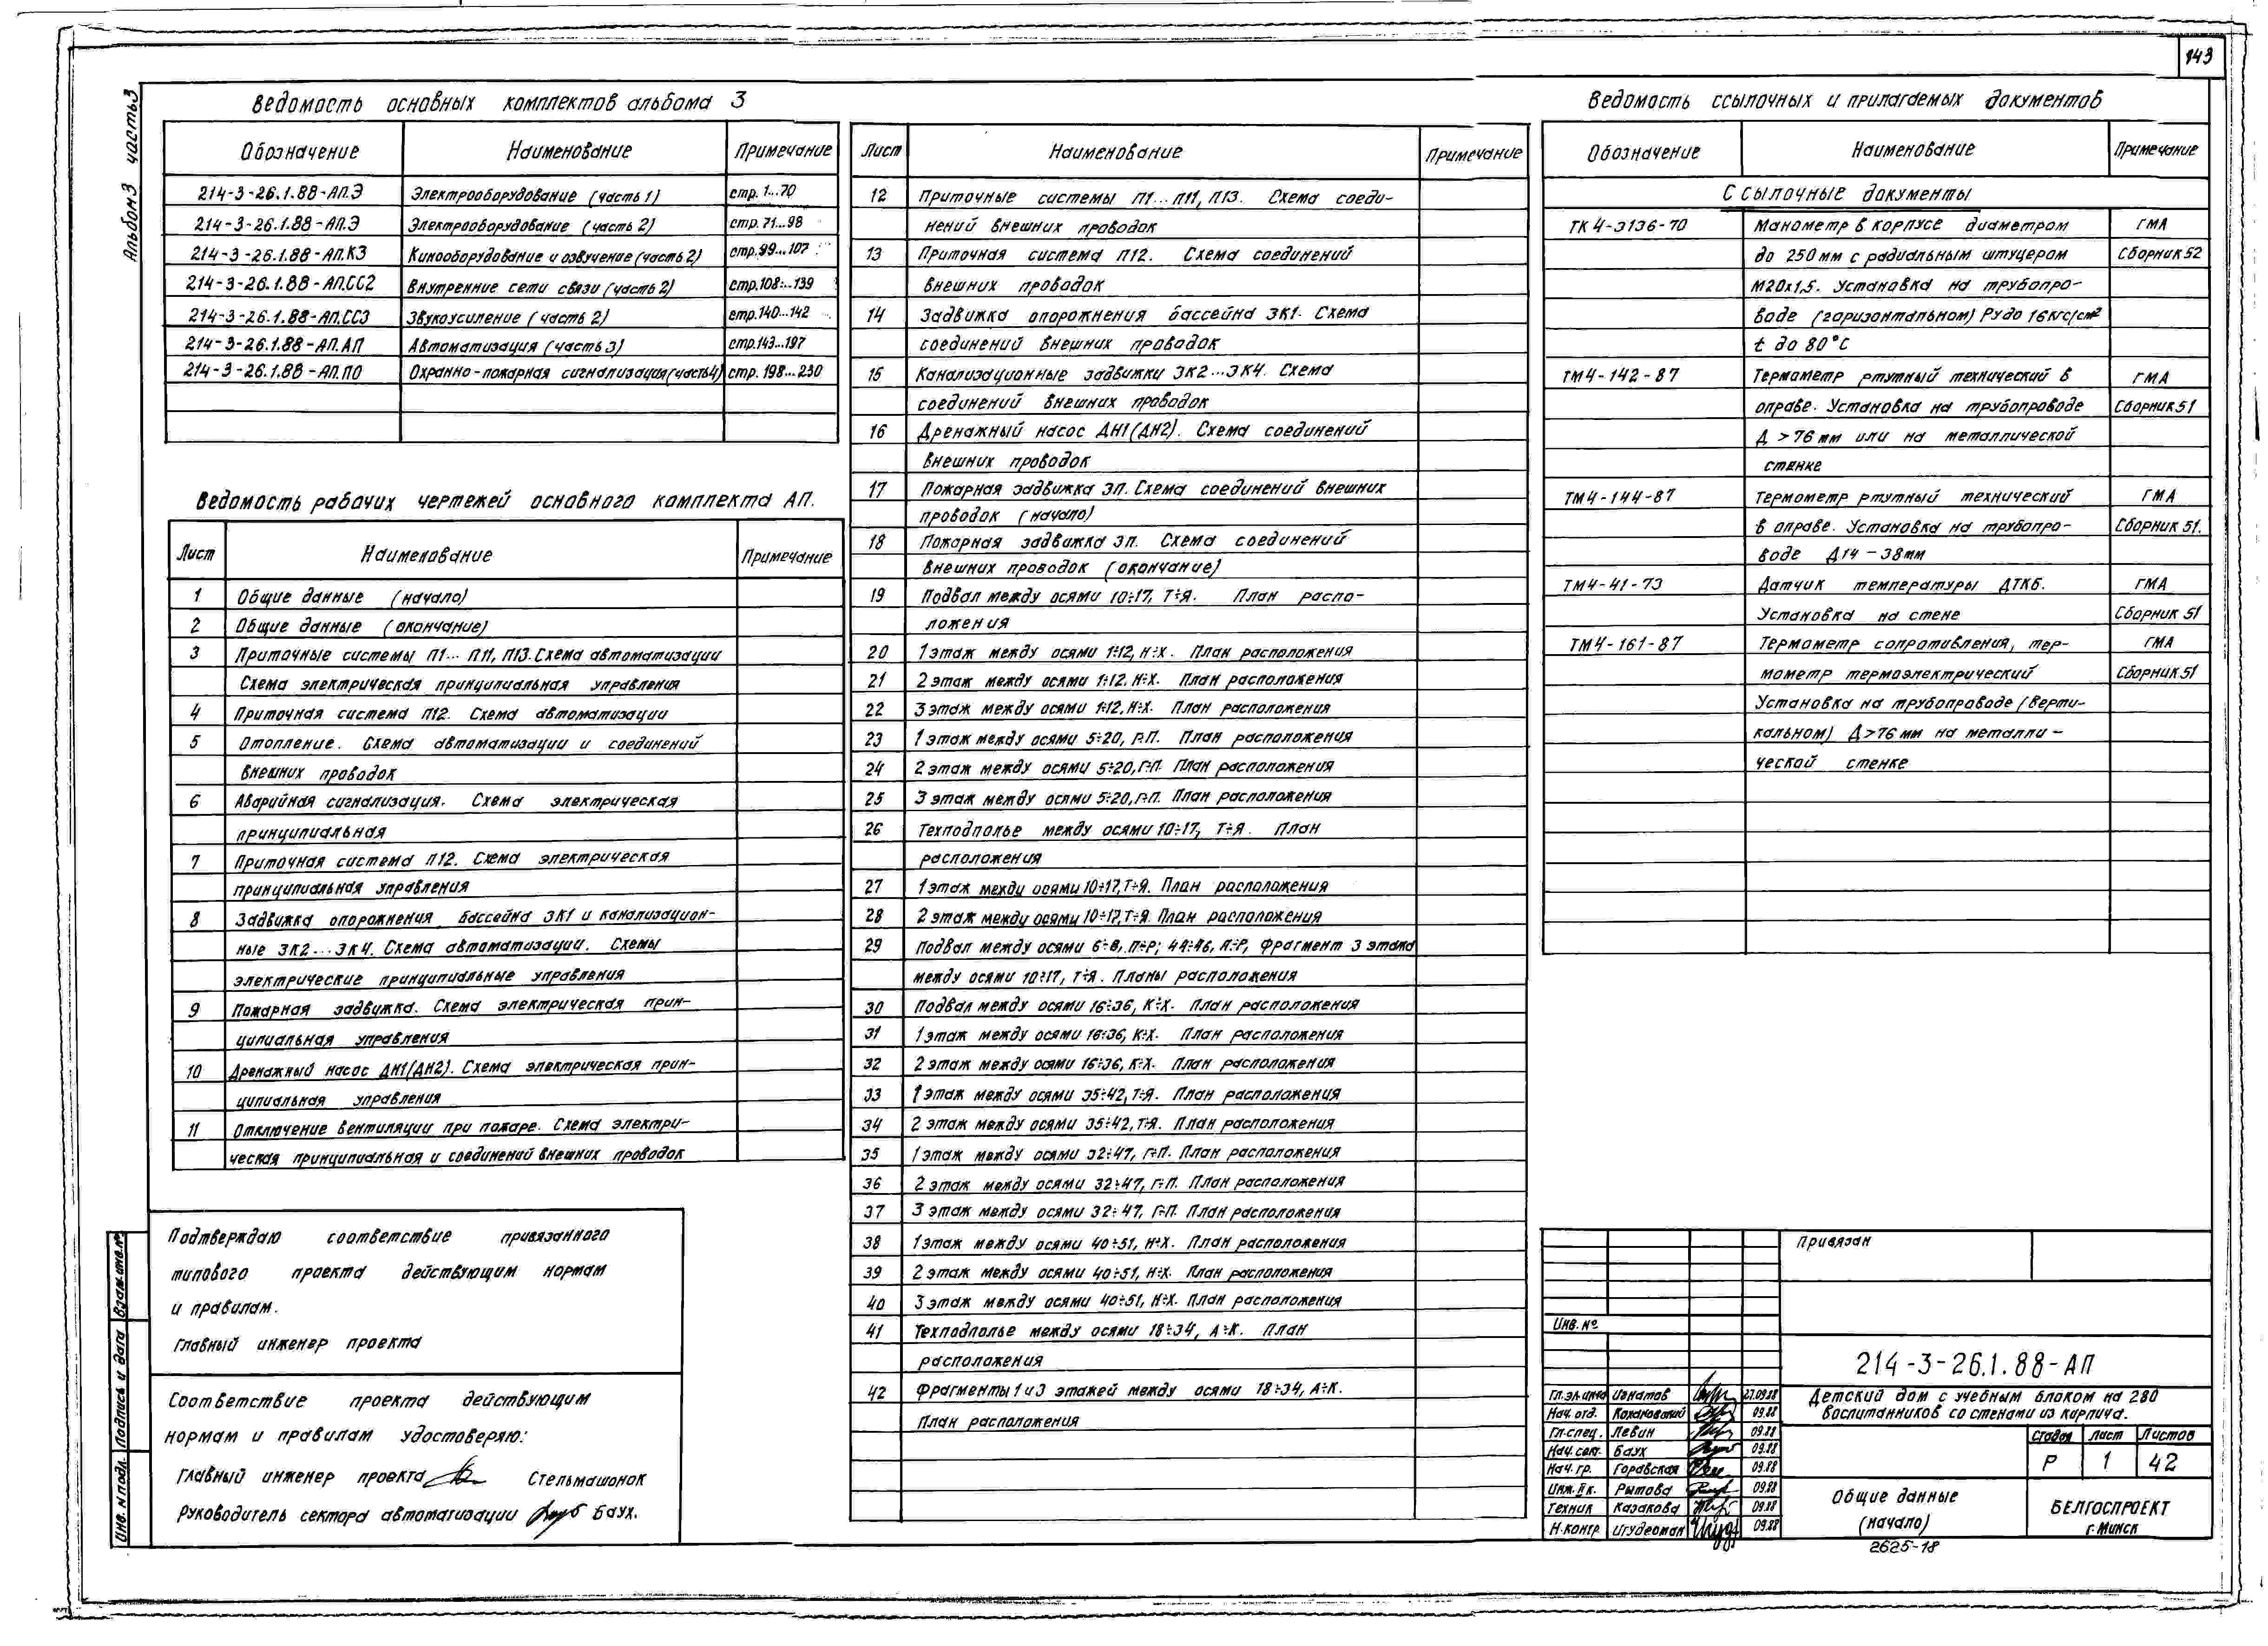 143
Альбом 3 часть 3
Ведомость основных комплектов альбома 3
Обозначение Наименование Примечание
214-3-26.1.88-АП.Э Электрооборудование (часть 1) стр. 1...70
214-3-26.1.88-АП.Э Электрооборудование (часть 2) стр. 71...98
214-3-26.1.88-АП.КЗ Кинооборудование и озвучение (часть 2) стр. 99...107
214-3-26.1.88-АП.СС2 Внутренние сети связи (часть 2) стр. 108...139
214-3-26.1.88-АП.СС3 Звукоусиление (часть 2) стр. 140...142
214-3-26.1.88-АП.АП Автоматизация (часть 3) стр. 143...197
214-3-26.1.88-АП.ПО Охранно-пожарная сигнализация (часть 4) стр. 198...230
Ведомость рабочих чертежей основного комплекта АП.
Лист Наименование Примечание
1 Общие данные (начало)
2 Общие данные (окончание)
3 Приточные системы П1... П11, П13. Схема автоматизации
Схема электрическая принципиальная управления
4 Приточная система П12. Схема автоматизации
5 Отопление. Схема автоматизации и соединений
внешних проводок
6 Аварийная сигнализация. Схема электрическая
принципиальная
7 Приточная система П12. Схема электрическая
принципиальная управления
8 Задвижка опорожнения бассейна ЗК1 и канализацион-
ные ЗК2...ЗК4. Схема автоматизации. Схемы
электрические принципиальные управления
9 Пожарная задвижка. Схема электрическая прин-
ципиальная управления
10 Дренажный насос ДН1(ДН2). Схема электрическая прин-
ципиальная управления
11 Отключение вентиляции при пожаре. Схема электри-
ческая принципиальная и соединений внешних проводок
Подтверждаю соответствие привязанного
типового проекта действующим нормам
и правилам.
Главный инженер проекта
Соответствие проекта действующим
нормам и правилам удостоверяю:
Главный инженер проекта Стельмашонок
Руководитель сектора автоматизации Баух.
Инв. N подл. Подпись и дата Взам. инв. №
Лист Наименование Примечание
12 Приточные системы П1...П11, П13. Схема соеди-
нений внешних проводок
13 Приточная система П12. Схема соединений
внешних проводок
14 Задвижка опорожнения бассейна ЗК1. Схема
соединений внешних проводок
15 Канализационные задвижки ЗК2...ЗК4. Схема
соединений внешних проводок
16 Дренажный насос ДН1(ДН2). Схема соединений
внешних проводок
17 Пожарная задвижка ЗП. Схема соединений внешних
проводок (начало)
18 Пожарная задвижка ЗП. Схема соединений
внешних проводок (окончание)
19 Подвал между осями 10÷17, Т÷Я. План распо-
ложения
20 1 этаж между осями 1÷12, Н÷Х. План расположения
21 2 этаж между осями 1÷12. Н÷Х. План расположения
22 3 этаж между осями 1÷12, Н÷Х. План расположения
23 1 этаж между осями 5÷20, Г÷П. План расположения
24 2 этаж между осями 5÷20, Г÷П. План расположения
25 3 этаж между осями 5÷20, Г÷П. План расположения
26 Техподполье между осями 10÷17, Т÷Я. План
расположения
27 1 этаж между осями 10÷17, Т÷Я. План расположения
28 2 этаж между осями 10÷17, Т÷Я. План расположения
29 Подвал между осями 6÷8, П÷Р; 44÷46, П÷Р, Фрагмент 3 этажа
между осями 10÷17, Т÷Я. Планы расположения
30 Подвал между осями 16÷36, К÷Х. План расположения
31 1 этаж между осями 16÷36, К÷Х. План расположения
32 2 этаж между осями 16÷36, К÷Х. План расположения
33 1 этаж между осями 35÷42, Т÷Я. План расположения
34 2 этаж между осями 35÷42, Т÷Я. План расположения
35 1 этаж между осями 32÷47, Г÷П. План расположения
36 2 этаж между осями 32÷47, Г÷П. План расположения
37 3 этаж между осями 32÷47, Г÷П. План расположения
38 1 этаж между осями 40÷51, Н÷Х. План расположения
39 2 этаж между осями 40÷51, Н÷Х. План расположения
40 3 этаж между осями 40÷51, Н÷Х. План расположения
41 Техподполье между осями 18÷34, А÷К. План
расположения
42 Фрагменты 1 и 3 этажей между осями 18÷34, А÷К.
План расположения
Ведомость ссылочных и прилагаемых документов
Обозначение Наименование Примечание
Ссылочные документы
ТК4-3136-70 Манометр в корпусе диаметром ГМА
до 250 мм с радиальным штуцером Сборник 52
М20х1,5. Установка на трубопро-
воде (горизонтальном) Ру до 16 кгс/см²
t до 80°С
ТМ4-142-87 Термометр ртутный технический в ГМА
оправе. Установка на трубопроводе Сборник 51
Д > 76 мм или на металлической
стенке
ТМ4-144-87 Термометр ртутный технический ГМА
в оправе. Установка на трубопро- Сборник 51.
воде Д14 - 38мм
ТМ4-41-73 Датчик температуры ДТКБ. ГМА
Установка на стене Сборник 51
ТМ4-161-87 Термометр сопротивления, тер- ГМА
мометр термоэлектрический Сборник 51
Установка на трубопроводе (верти-
кальном) Д>76 мм на металли-
ческой стенке
Привязан
Инв. №
214-3-26.1.88-АП
Гл.эл.инж Игнатов 27.09.88
Нач. отд. Кохановский 09.88
Гл.спец. Левин 09.88
Нач. сект. Баух 09.88
Нач. гр. Горавская 09.88
Инж. II к. Рытова 09.88
Техник Казакова 09.88
Н.контр. 09.88
Детский дом с учебным блоком на 280
воспитанников со стенами из кирпича.
Стадия Лист Листов
Р 1 42
Общие данные
(начало)
БЕЛГОСПРОЕКТ
г. Минск
2625-18